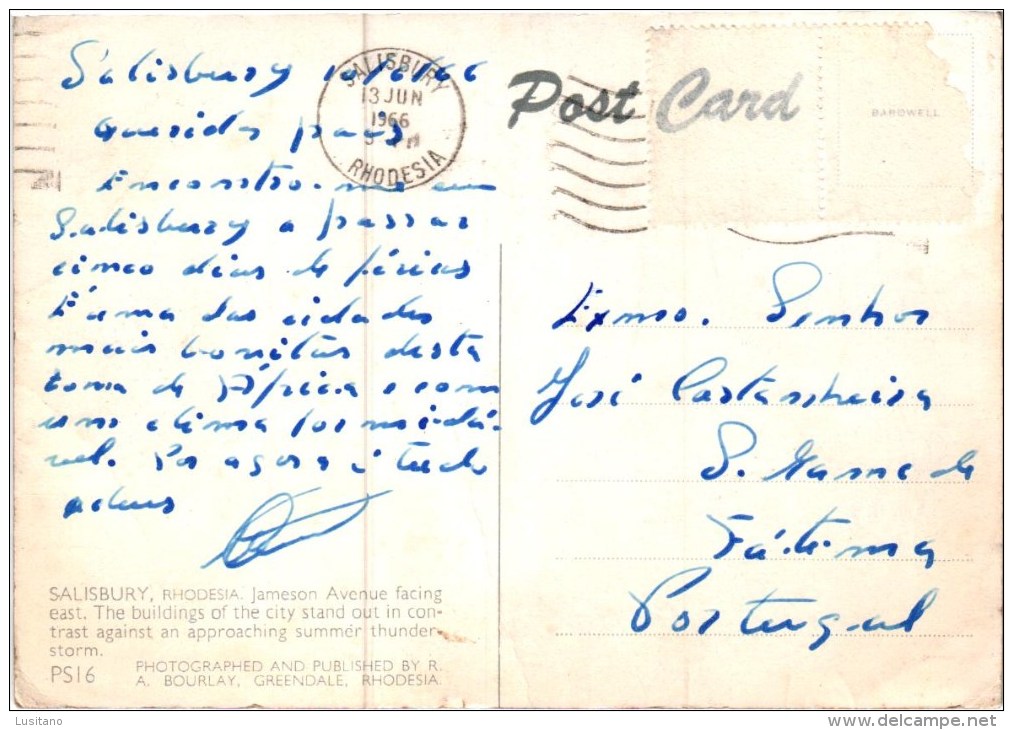 Salisbury 10/6/66
Queridos pais
Encontro-me em
Salisbury a passar
cinco dias de férias
É uma das cidades
mais bonitas desta
zona de África e com
um clima formidá-
vel. Por agora é tudo
adeus
SALISBURY
13 JUN
1966
PM
RHODESIA
Post Card
BARDWELL
Exmo. Senhor
José Castanheira
S. Mamede
Fátima
Portugal
SALISBURY, RHODESIA. Jameson Avenue facing
east. The buildings of the city stand out in con-
trast against an approaching summer thunder-
storm.
PS16 PHOTOGRAPHED AND PUBLISHED BY R.
A. BOURLAY, GREENDALE, RHODESIA.
Lusitano
www.delcampe.net